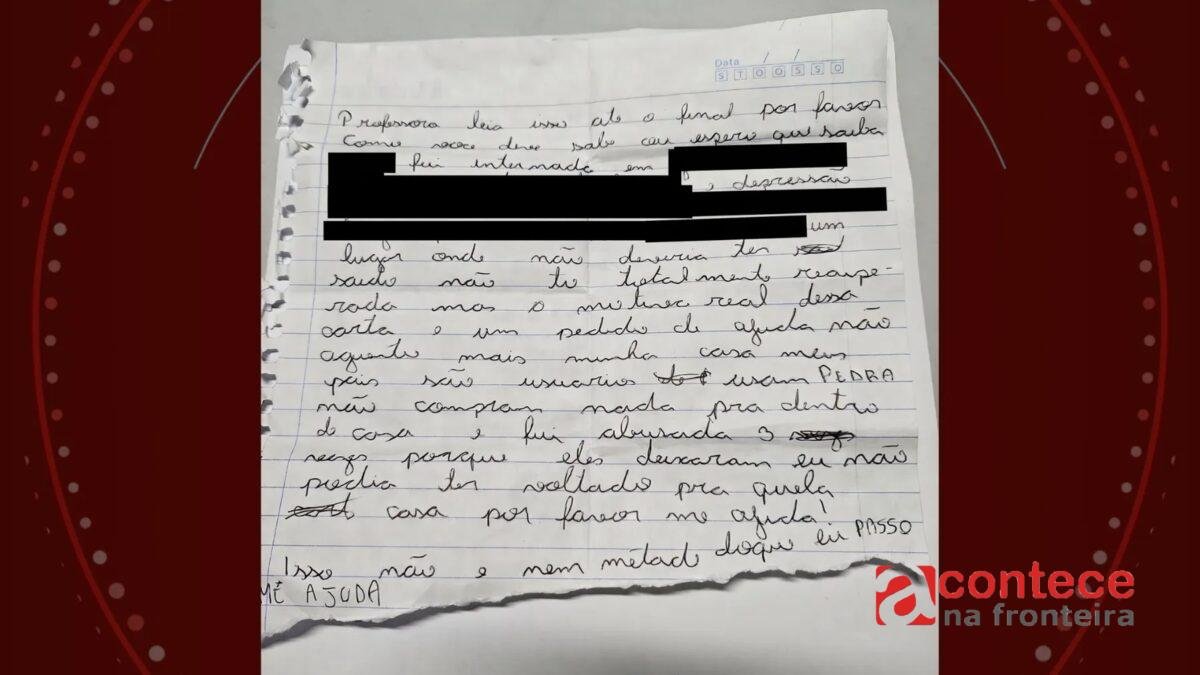 Data / /
S T Q Q S S D
Professora leia isso ate o final por favor
Como voce deve sabe ou espero que saiba
fui internada em
e depressão
um
lugar onde não deveria ter
saido não to totalmente recupe-
rada mas o motivo real dessa
carta e um pedido de ajuda não
aguento mais minha casa meus
pais são usuarios usam PEDRA
não compram nada pra dentro
de casa e fui abusada 3
vezes porque eles deixaram eu não
podia ter voltado pra quela
casa por favor me ajuda!
Isso não e nem metad doque eu PASSO
ME AJUDA
acontece
na fronteira